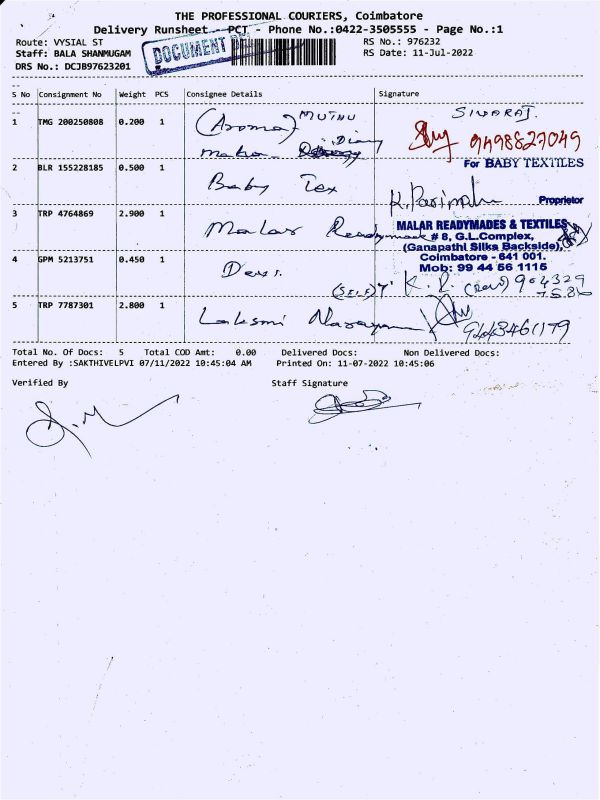 THE PROFESSIONAL COURIERS, Coimbatore
Delivery Runsheet - PCT - Phone No.:0422-3505555 - Page No.:1
Route: VYSIAL ST RS No.: 976232
Staff: BALA SHANMUGAM RS Date: 11-Jul-2022
DRS No.: DCJB97623201
DOCUMENT
S No Consignment No Weight PCS Consignee Details Signature
1 TMG 200250808 0.200 1 (Aroma) MUTHU SIVARAJ.
9498827049
For BABY TEXTILES
2 BLR 155228185 0.500 1 Baby Tex
Proprietor
3 TRP 4764869 2.900 1 Malar MALAR READYMADES & TEXTILES
# 8, G.L.Complex,
(Ganapathi Silks Backside),
4 GPM 5213751 0.450 1 Devi. Coimbatore - 641 001.
Mob: 99 44 56 1115
(SELF) K. R.
5 TRP 7787301 2.800 1 Laksmi Narayana
Total No. Of Docs: 5 Total COD Amt: 0.00 Delivered Docs: Non Delivered Docs:
Entered By :SAKTHIVELPVI 07/11/2022 10:45:04 AM Printed On: 11-07-2022 10:45:06
Verified By Staff Signature